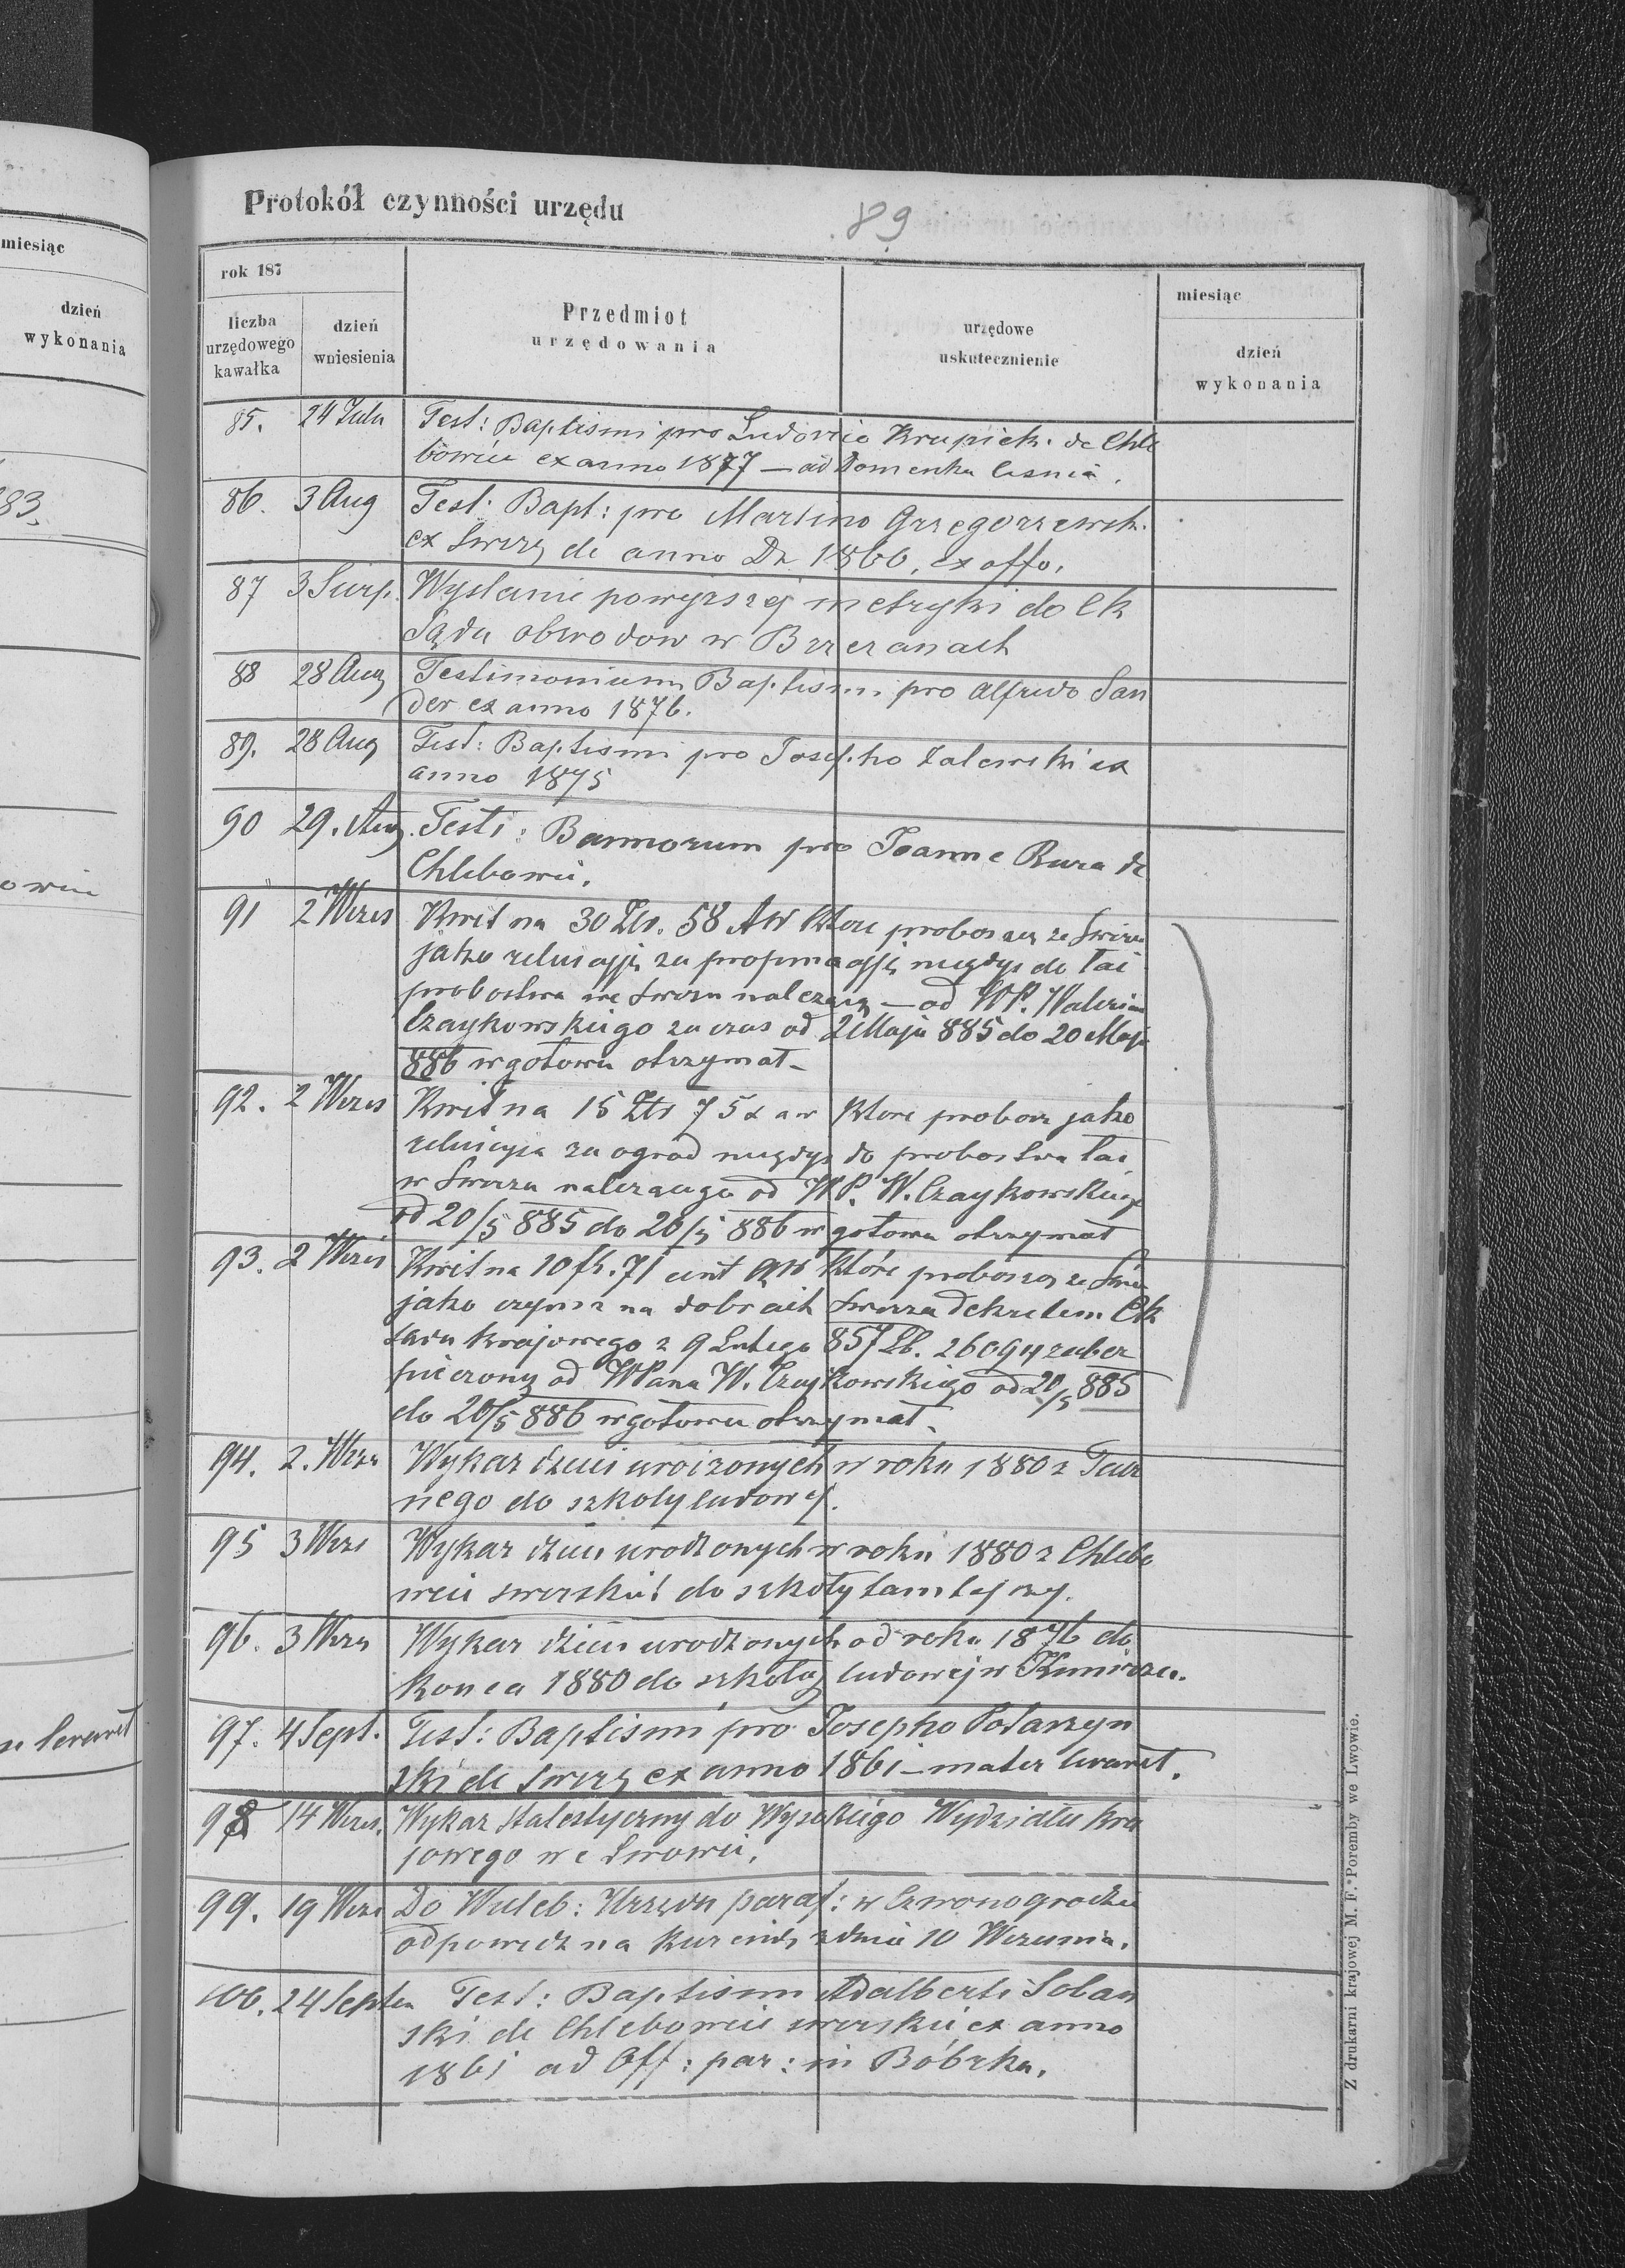 miesiąc
dzień
wykonania
83.
Protokół czynności urzędu
89
rok 187
liczba
urzędowego
kawałka
dzień
wniesienia
Przedmiot
urzędowania
urzędowe
uskutecznienie
miesiąc
dzień
wykonania
85. 24 Julii Test: Baptismi pro Ludovico Krupick. de Chle
bowice ex anno 1877 — ad
86. 3 Aug Test: Bapt: pro Martino Grzegorzewsk.
ex Swirz de anno Di 1860, ex offo.
87 3 Sierp. Wysłanie powyższej metryki do Ck
Sądu obwodow w Brzezanach
88 28 Aug Testimonium Baptismi pro Alfredo San
der ex anno 1876.
89. 28 Aug Test: Baptismi pro Josepho Zalewski ex
anno 1875
90 29. Aug. Testi: Bannorum pro Joanne Rura de
Chlebowic.
91 2 Wrzes Kwit na 30 Zlr. 58 AW ktore proboszcz ze Swirza
jako relucyję za propinacyję niegdys do łac
probostwa we Swirzu należącą — od WP. Waleriana
Czaykowskiego za czas od Maja 885 do 20 Maja
886 w gotowce otrzymał —
92. 2 Wrzes Kwit na 15 Zlr 75 x aw ktore probosz jako
relucyja za ogrod niegdys do probostwa łac
w Swirzu nalezącego od WP. W. Czaykowskiego
od 20/5 885 do 20/5 886 w gotowce otrzymał
93. 2 Wrzes Kwit na 10 fl. 71 cent aw które proboszcz ze Swirza
jako czynsz na dobrach Swirza dekretem Ck
Sądu krajowego z 9 Lutego 857 Lb. 26094 zabez
pieczony od WPana W. Czajkowskiego od 20/5 885
do 20/5 886 w gotowce otrzymał.
94. 2. Wrze Wykaz dzieci urodzonych w roku 1880 z
nego do szkoly ludowej.
95 3 Wrze Wykaz dzieci urodzonych w roku 1880 z Chlebo
wic swirskich do szkoły tamtejszej.
96. 3 Wrze Wykaz dzieci urodzonych od roku 1876 do
konca 1880 do szkoły ludowej w
97. 4 Sept. Test: Baptismi pro Josepho Potarzyn
ski de Swirz ex anno 1861 — mater levavit.
98 14 Wrzes. Wykaz statestyczny do Wysokiego Wydziału kra
jowego we Lwowie.
99. 19 Wrze Do Wieleb: Urzędu paraf: w Czwonogrodzie
odpowiedz na kurendę z dnia 10 Wrzesnia.
100. 24 Septem Test: Baptismi Adalberti Soban
ski de Chlebowice swirskie ex anno
1861 ad Off: par: in Bóbrka.
Z drukarni krajowej M. F. Poremby we Lwowie.